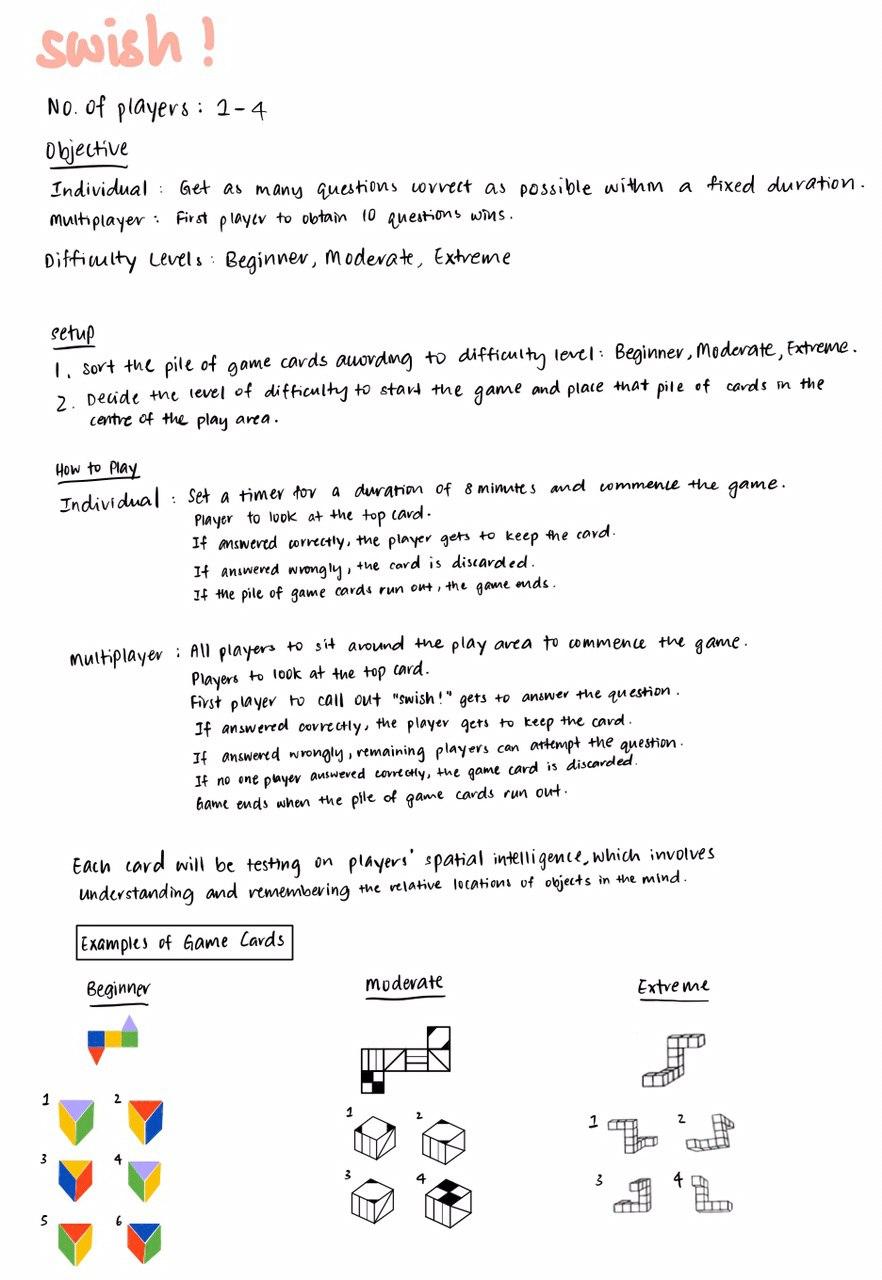 swish!
No. of players : 1-4
Objective
Individual : Get as many questions correct as possible within a fixed duration.
Multiplayer : First player to obtain 10 questions wins.
Difficulty Levels : Beginner, Moderate, Extreme
Setup
1. Sort the pile of game cards according to difficulty level : Beginner, Moderate, Extreme.
2. Decide the level of difficulty to start the game and place that pile of cards in the
centre of the play area.
How to Play
Individual : Set a timer for a duration of 8 minutes and commence the game.
Player to look at the top card.
If answered correctly, the player gets to keep the card.
If answered wrongly, the card is discarded.
If the pile of game cards run out, the game ends.
Multiplayer : All players to sit around the play area to commence the game.
Players to look at the top card.
First player to call out "swish!" gets to answer the question.
If answered correctly, the player gets to keep the card.
If answered wrongly, remaining players can attempt the question.
If no one player answered correctly, the game card is discarded.
Game ends when the pile of game cards run out.
Each card will be testing on players' spatial intelligence, which involves
understanding and remembering the relative locations of objects in the mind.
Examples of Game Cards
Beginner
1 2
3 4
5 6
Moderate
1 2
3 4
Extreme
1 2
3 4